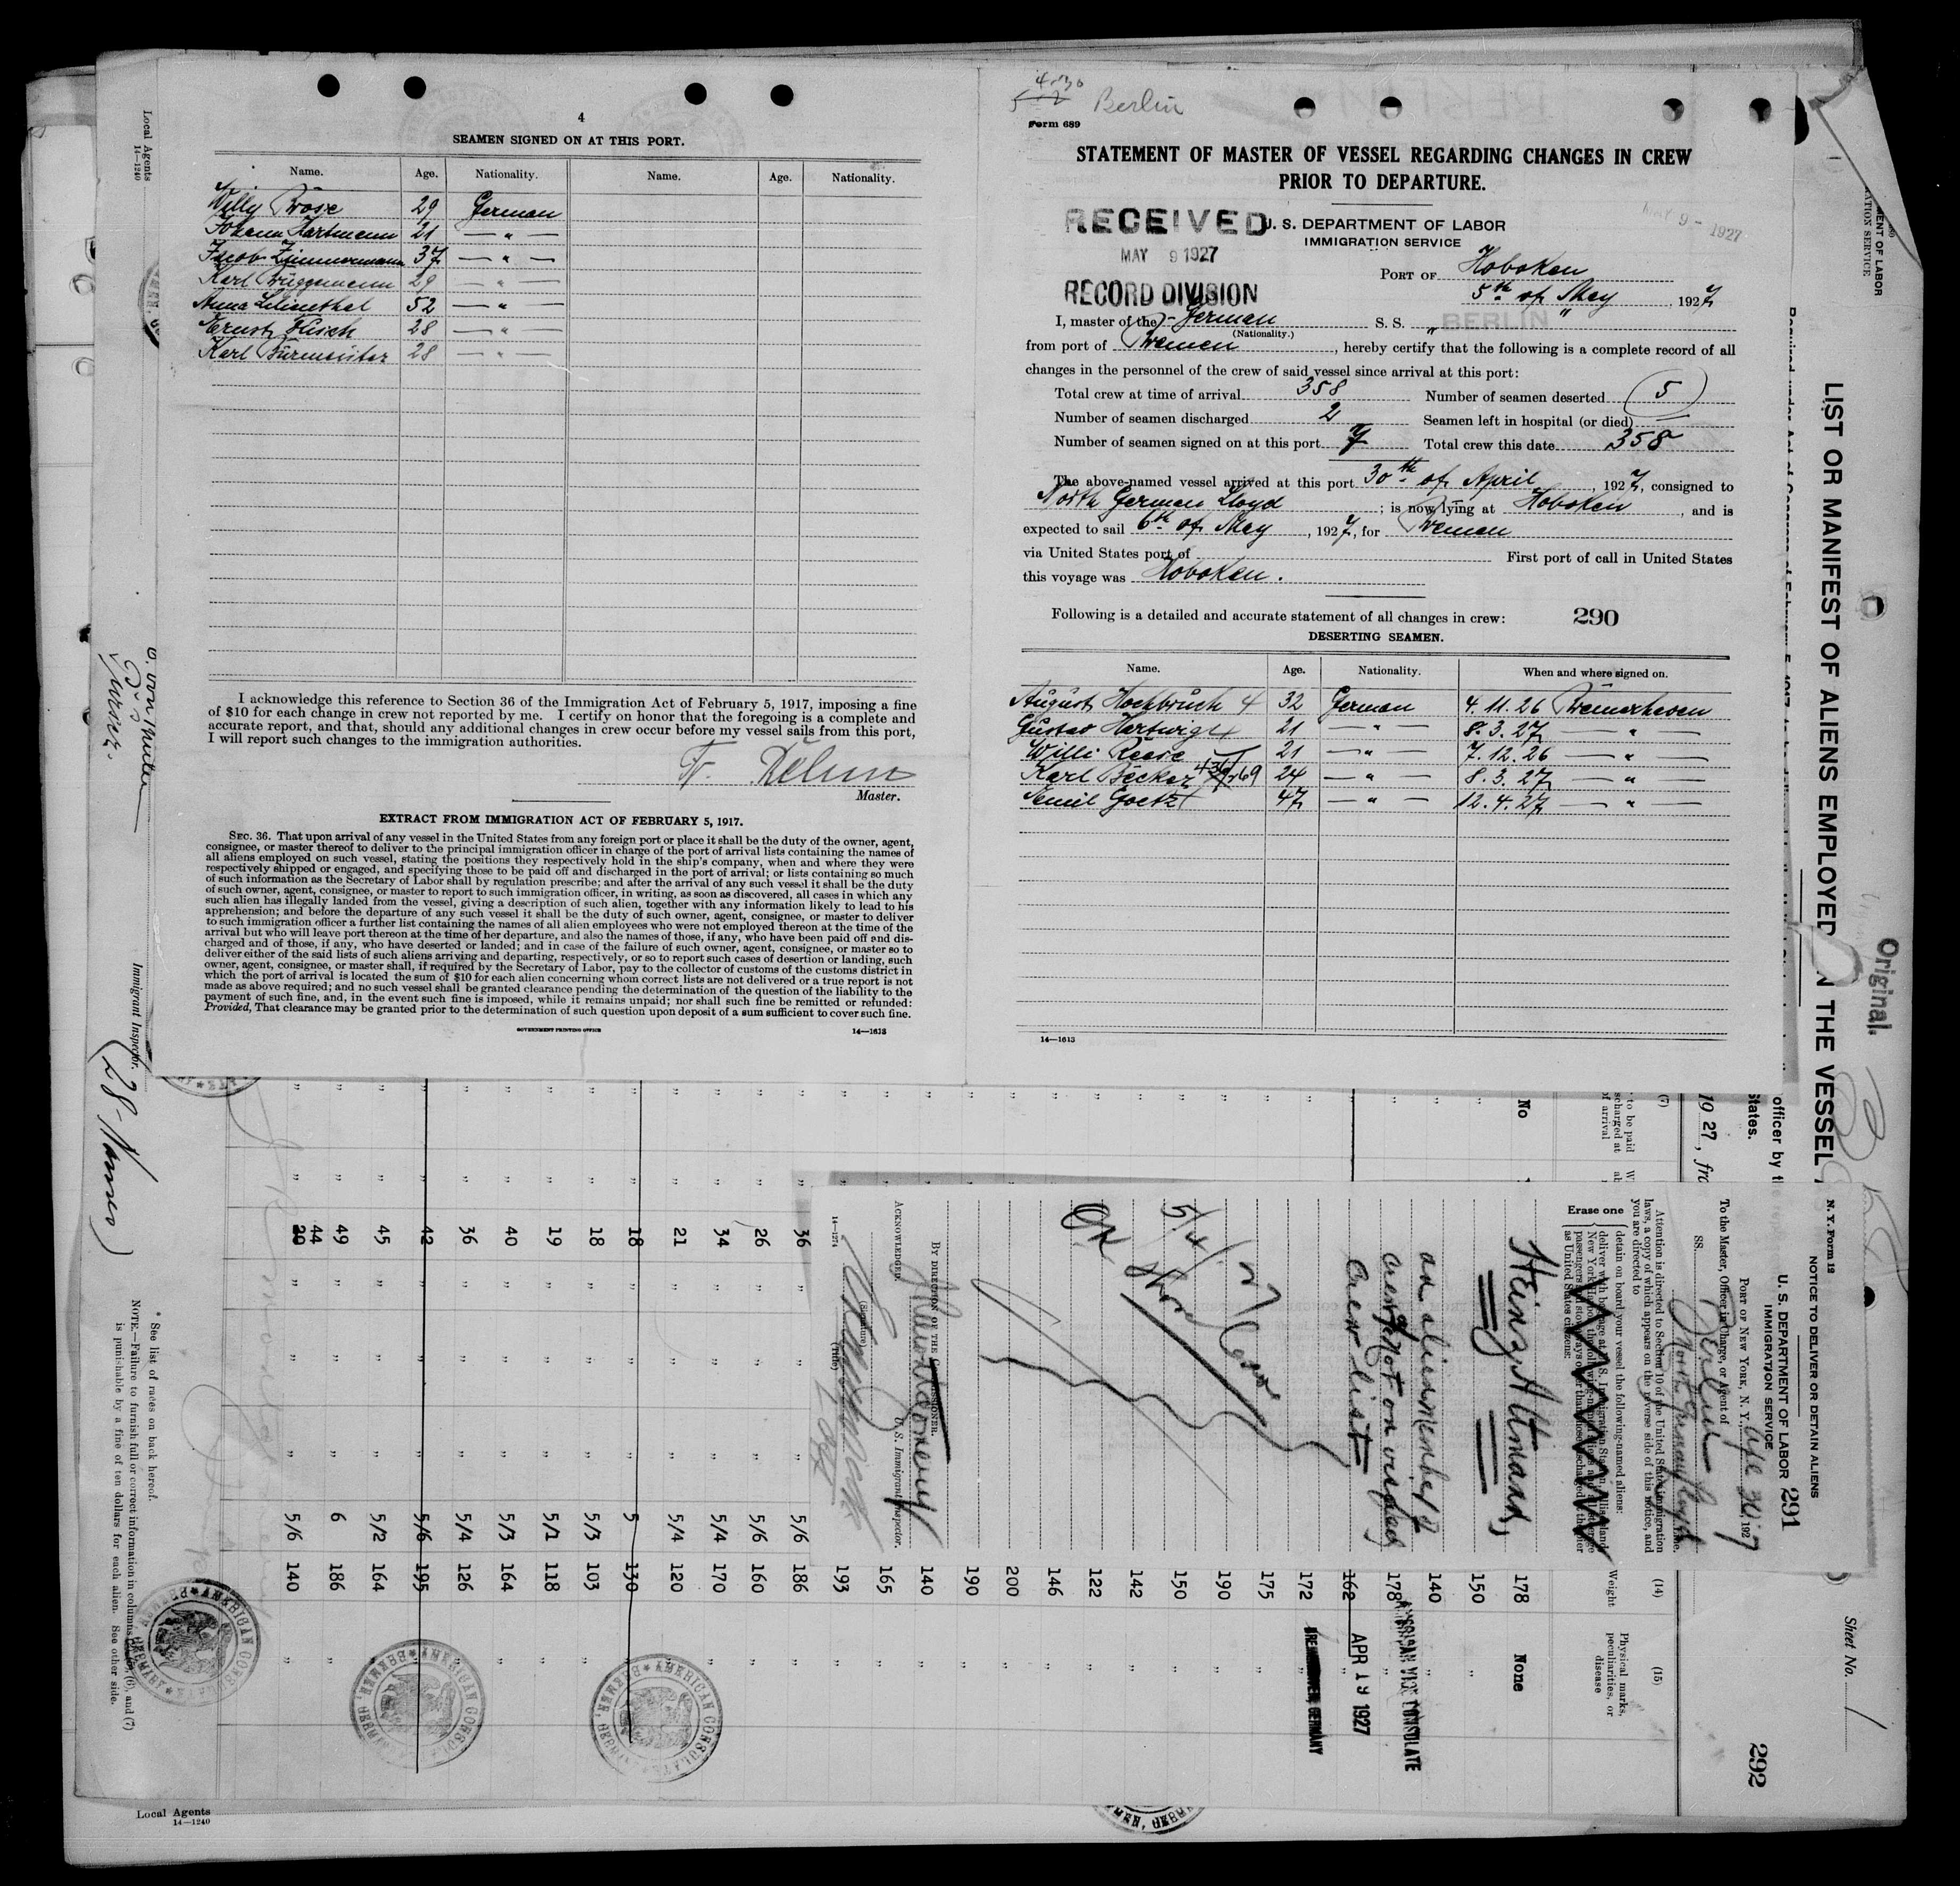 4
SEAMEN SIGNED ON AT THIS PORT.
Name. Age. Nationality. Name. Age. Nationality.
Willy 29 German
Johann Hartmann 21 — " —
Jacob Zimmermann 37 — " —
Karl Brüggemann 29 — " —
Anna Lilienthal 52 — " —
Ernst 28 — " —
Karl Burmeister 28 — " —
I acknowledge this reference to Section 36 of the Immigration Act of February 5, 1917, imposing a fine
of $10 for each change in crew not reported by me. I certify on honor that the foregoing is a complete and
accurate report, and that, should any additional changes in crew occur before my vessel sails from this port,
I will report such changes to the immigration authorities.
Master.
EXTRACT FROM IMMIGRATION ACT OF FEBRUARY 5, 1917.
SEC. 36. That upon arrival of any vessel in the United States from any foreign port or place it shall be the duty of the owner, agent,
consignee, or master thereof to deliver to the principal immigration officer in charge of the port of arrival lists containing the names of
all aliens employed on such vessel, stating the positions they respectively hold in the ship's company, when and where they were
respectively shipped or engaged, and specifying those to be paid off and discharged in the port of arrival; or lists containing so much
of such information as the Secretary of Labor shall by regulation prescribe; and after the arrival of any such vessel it shall be the duty
of such owner, agent, consignee, or master to report to such immigration officer, in writing, as soon as discovered, all cases in which any
such alien has illegally landed from the vessel, giving a description of such alien, together with any information likely to lead to his
apprehension; and before the departure of any such vessel it shall be the duty of such owner, agent, consignee, or master to deliver
to such immigration officer a further list containing the names of all alien employees who were not employed thereon at the time of the
arrival but who will leave port thereon at the time of her departure, and also the names of those, if any, who have been paid off and dis-
charged and of those, if any, who have deserted or landed; and in case of the failure of such owner, agent, consignee, or master so to
deliver either of the said lists of such aliens arriving and departing, respectively, or so to report such cases of desertion or landing, such
owner, agent, consignee, or master shall, if required by the Secretary of Labor, pay to the collector of customs of the customs district in
which the port of arrival is located the sum of $10 for each alien concerning whom correct lists are not delivered or a true report is not
made as above required; and no such vessel shall be granted clearance pending the determination of the question of the liability to the
payment of such fine, and, in the event such fine is imposed, while it remains unpaid; nor shall such fine be remitted or refunded:
Provided, That clearance may be granted prior to the determination of such question upon deposit of a sum sufficient to cover such fine.
GOVERNMENT PRINTING OFFICE 14—1613
Berlin
Form 689
STATEMENT OF MASTER OF VESSEL REGARDING CHANGES IN CREW
PRIOR TO DEPARTURE.
RECEIVED U. S. DEPARTMENT OF LABOR
IMMIGRATION SERVICE
MAY 9 1927
MAY 9 - 1927
PORT OF Hoboken
RECORD DIVISION
5th of May 1927
I, master of the German S. S. "BERLIN"
(Nationality.)
from port of Bremen, hereby certify that the following is a complete record of all
changes in the personnel of the crew of said vessel since arrival at this port:
Total crew at time of arrival 358 Number of seamen deserted 5
Number of seamen discharged 2 Seamen left in hospital (or died)
Number of seamen signed on at this port 7 Total crew this date 358
The above-named vessel arrived at this port 30th of April, 1927, consigned to
North German Lloyd; is now lying at Hoboken, and is
expected to sail 6th of May, 1927, for Bremen
via United States port of First port of call in United States
this voyage was Hoboken.
Following is a detailed and accurate statement of all changes in crew: 290
DESERTING SEAMEN.
Name. Age. Nationality. When and where signed on.
August Hockbruch 4 32 German 4.11.26 Bremerhaven
Gustav Hartwig 21 — " — 8.3.27 — " —
Willi Reese 21 — " — 7.12.26 — " —
Karl Becker 24 — " — 8.3.27 — " —
Emil Goetz 47 — " — 12.4.27 — " —
14—1613
Local Agents
14—1240
Purser.
Immigrant Inspector.
LIST OR MANIFEST OF ALIENS EMPLOYED ON THE VESSEL
Original.
Sheet No. 1
292
officer by
States.
1927, fro
(7)
to be paid
scharged at
of arrival
No
(14)
Weight
(15)
Physical marks,
peculiarities, or
disease
None
N. Y. Form 12
NOTICE TO DELIVER OR DETAIN ALIENS
U. S. DEPARTMENT OF LABOR 291
IMMIGRATION SERVICE
PORT OF NEW YORK, N. Y., 1927
To the Master, Officer in Charge, or Agent of
SS. Berlin
Attention is directed to Section 10 of the United States immigration
laws, a copy of which appears on the reverse side of this notice, and
you are directed to
Erase one
detain on board your vessel the following-named aliens:
Heinz Altmann,
an alien member of
crew not on visaed
crew list
OK
BY DIRECTION OF THE COMMISSIONER.
U. S. Immigrant Inspector.
ACKNOWLEDGED:
(Signature)
(Title)
14—1274
AMERICAN VICE CONSULATE
APR 19 1927
BREMERHAVEN, GERMANY
178
150
140
178
162
172
175
190
150
142
122
146
200
190
140
165
193
36 5/6 186
26 5/6 160
34 5/4 170
21 5/4 120
18 5 130
18 5/3 103
19 5/1 118
40 5/3 164
36 5/4 126
42 5/6 195
45 5/2 164
49 6 186
44 5/6 140
AMERICAN CONSULATE
BREMEN, GERMANY
* See list of races on back hereof.
NOTE.—Failure to furnish full or correct information in columns (6), and (7)
is punishable by a fine of ten dollars for each alien. See other side.
Local Agents
14—1240